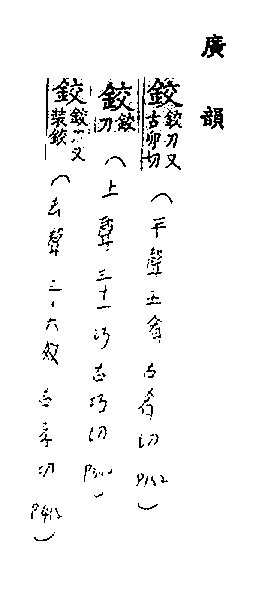 廣韻
鉸 鉸刀又古卯切 (平聲五肴 古肴切 P152)
鉸 鉸刀 (上聲三十一巧 古巧切
鉸 鉸刀又裝鉸 (去聲三十六效 古孝切 P415)